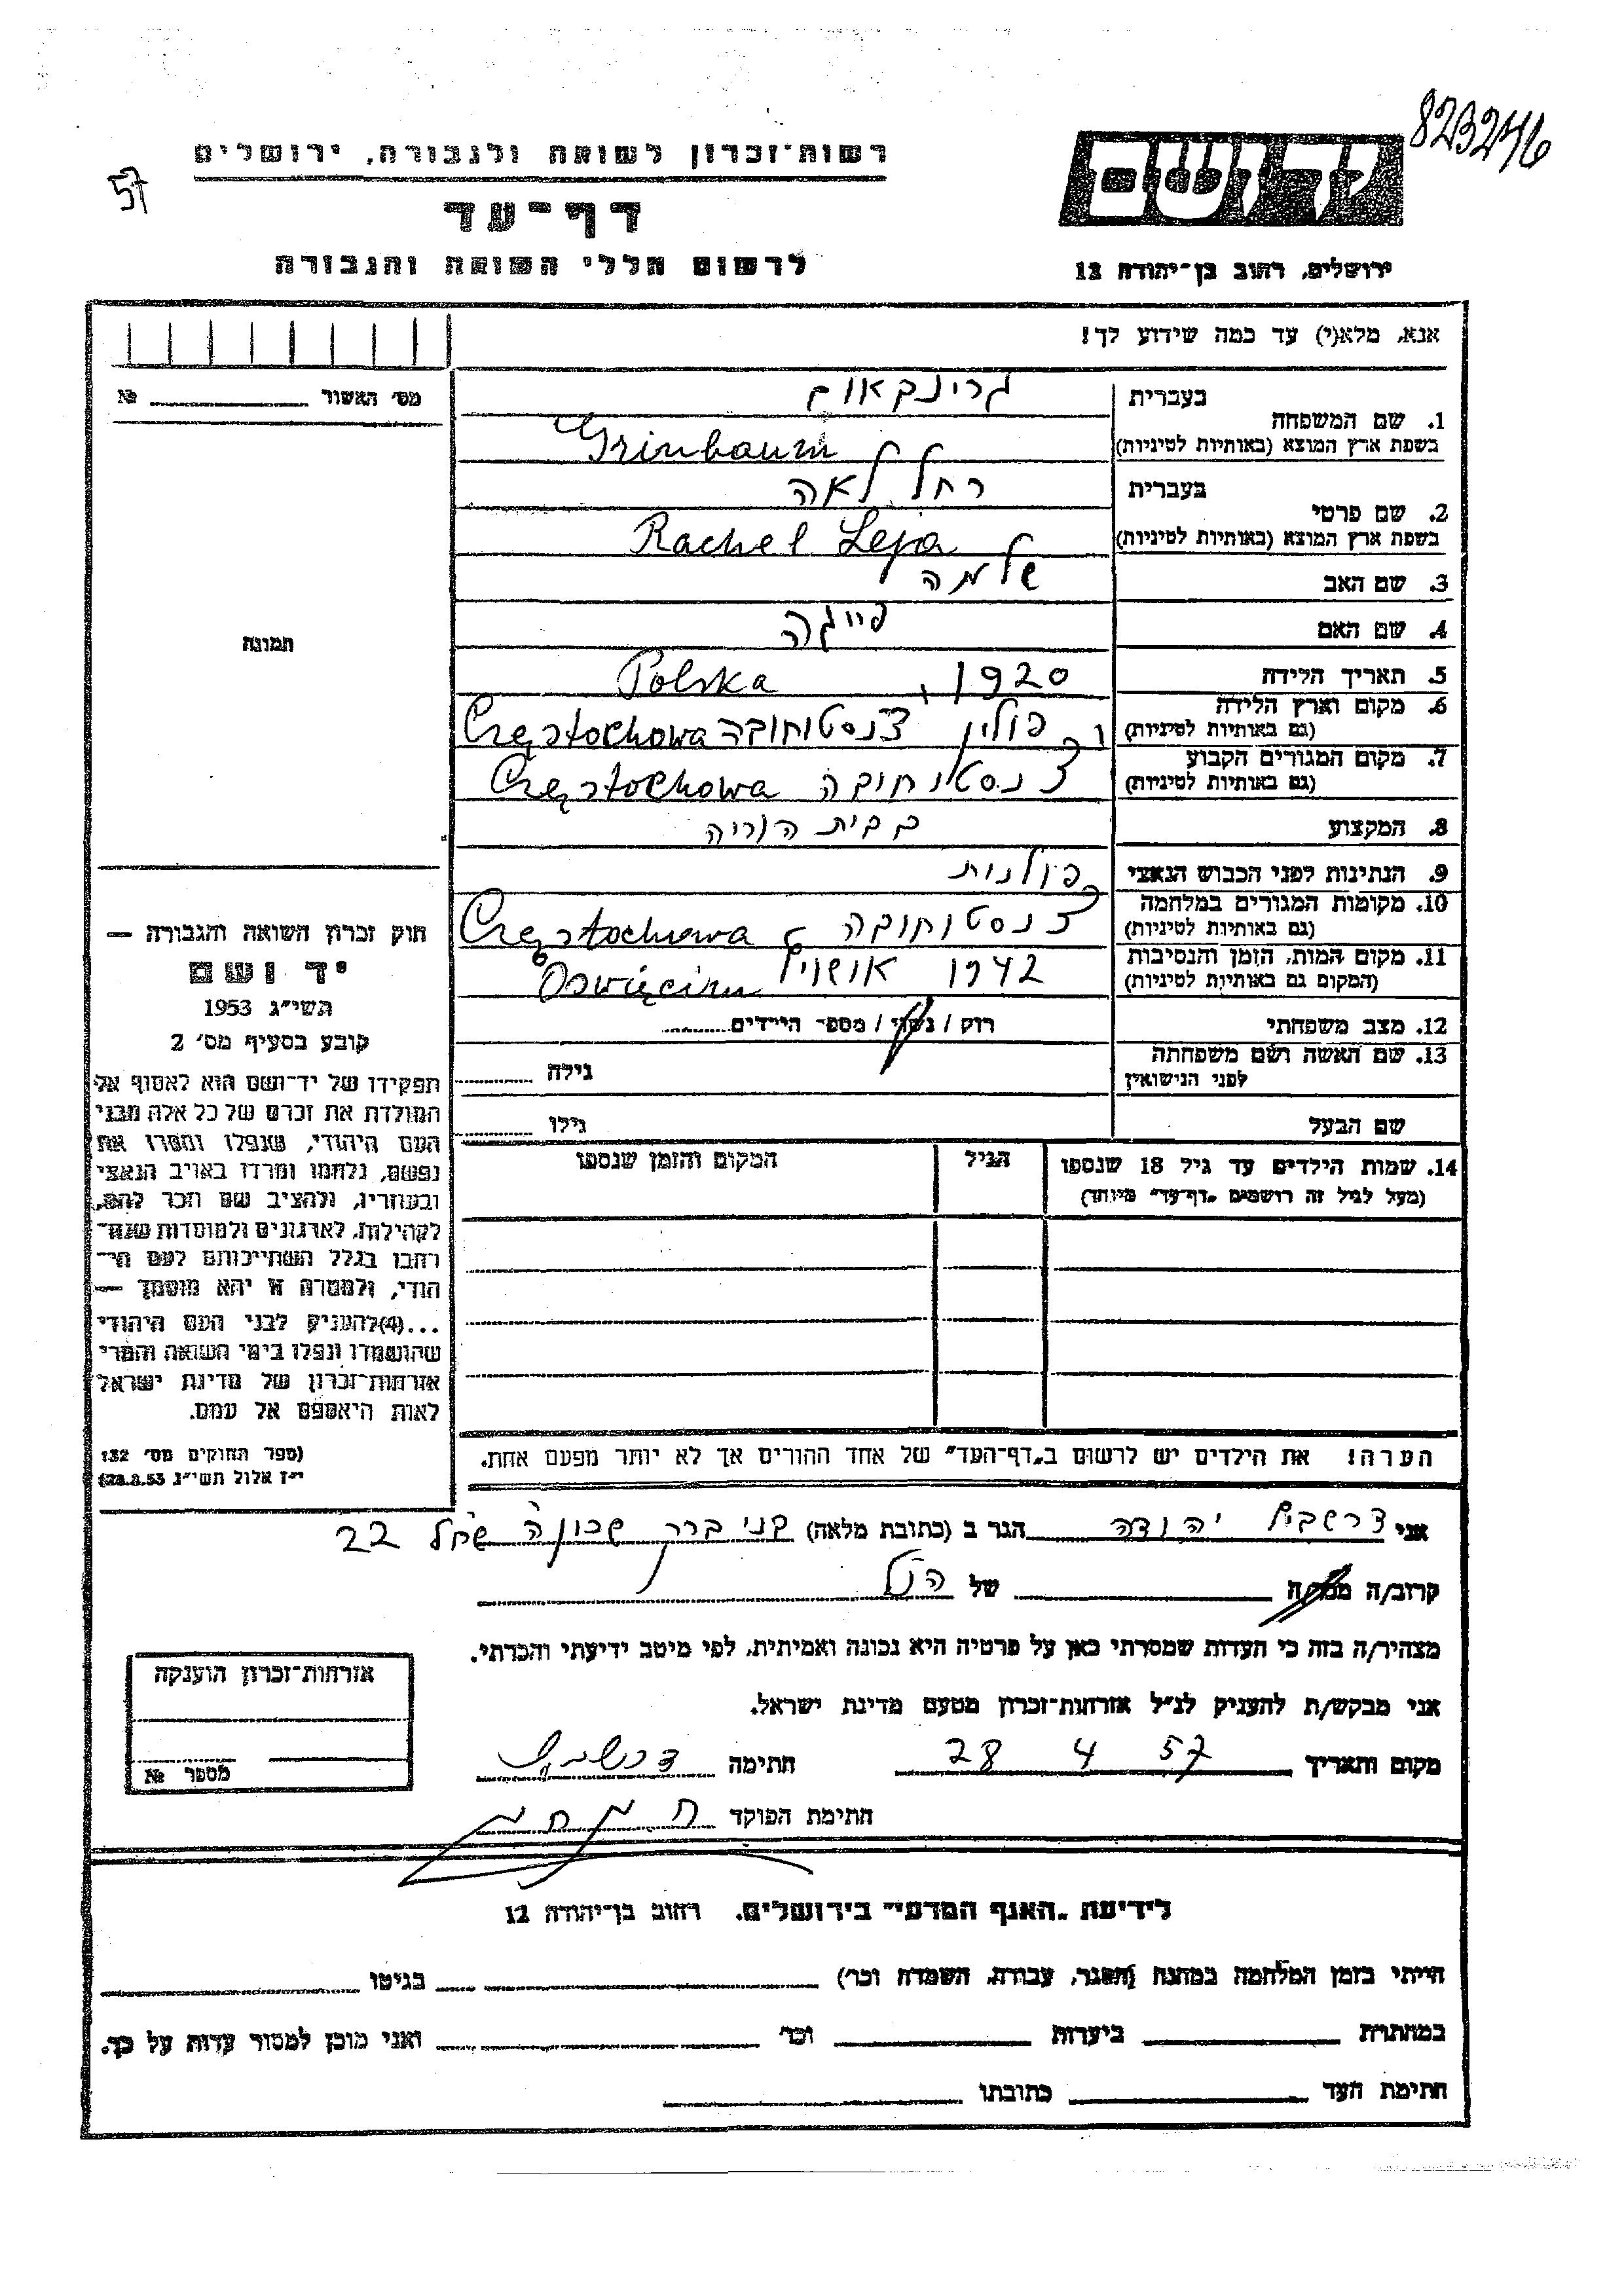 823246
57
רשות־זכרון לשואה ולגבורה, ירושלים
דף־עד
לרשום חללי השואה והגבורה
יד ושם
ירושלים, רחוב בן־יהודה 12
אנא, מלא(י) עד כמה שידוע לך!
מס׳ האשור № 
1. שם המשפחה
בעברית גרינבאום
בשפת ארץ המוצא (באותיות לטיניות) Grinbaum
2. שם פרטי
בעברית רחל לאה
בשפת ארץ המוצא (באותיות לטיניות) Rachel Leja
3. שם האב שלמה
4. שם האם פייגה
5. תאריך הלידה 1920, Polska
6. מקום וארץ הלידה
(גם באותיות לטיניות) פולין צנסטוחובה Częstochowa
7. מקום המגורים הקבוע
(גם באותיות לטיניות) צנסטוחובה Częstochowa
8. המקצוע בבית הוריה
9. הנתינות לפני הכבוש הנאצי פולנית
10. מקומות המגורים במלחמה
(גם באותיות לטיניות) צנסטוחובה Częstochowa
11. מקום המות, הזמן והנסיבות
(המקום גם באותיות לטיניות) 1942 Oswięcim
12. מצב משפחתי רווק / נשוי / מספר הילדים
13. שם האשה ושם משפחתה
לפני הנישואין גילה
שם הבעל גילו
14. שמות הילדים עד גיל 18 שנספו הגיל המקום והזמן שנספו
(מעל לגיל זה רושמים „דף־עד” מיוחד)
הערה! את הילדים יש לרשום ב„דף־העד” של אחד ההורים אך לא יותר מפעם אחת.
תמונה
חוק זכרון השואה והגבורה —
יד ושם
תשי״ג 1953
קובע בסעיף מס׳ 2
תפקידו של יד־ושם הוא לאסוף אל
המולדת את זכרם של כל אלה מבני
העם היהודי, שנפלו ומסרו את
נפשם, נלחמו ומרדו באויב הנאצי
ובעוזריו, ולהציב שם וזכר להם,
לקהילות, לארגונים ולמוסדות שנח־
רבו בגלל השתייכותם לעם הי־
הודי, ולמטרה זו יהא מוסמך —
...(4)להעניק לבני העם היהודי
שהושמדו ונפלו בימי השואה והמרי
אזרחות־זכרון של מדינת ישראל
לאות היאספם אל עמם.
(ספר החוקים מס׳ 132
י״ז אלול תשי״ג 28.8.53)
אני יהודה הגר ב (כתובת מלאה) בני ברק שכונה 22
קרוב/ה מכר/ה של הנ״ל
מצהיר/ה בזה כי העדות שמסרתי כאן על פרטיה היא נכונה ואמיתית, לפי מיטב ידיעתי והכרתי.
אני מבקש/ת להעניק לנ״ל אזרחות־זכרון מטעם מדינת ישראל.
מקום ותאריך 28 4 57 חתימה
חתימת הפוקד
אזרחות־זכרון הוענקה
מספר №
לידיעת „האגף המדעי” בירושלים. רחוב בן־יהודה 12
הייתי בזמן המלחמה במחנה (הסגר, עבודה, השמדה וכו׳) בגיטו
במחתרת ביערות וכו׳ ואני מוכן למסור עדות על כך.
חתימת העד כתובתו